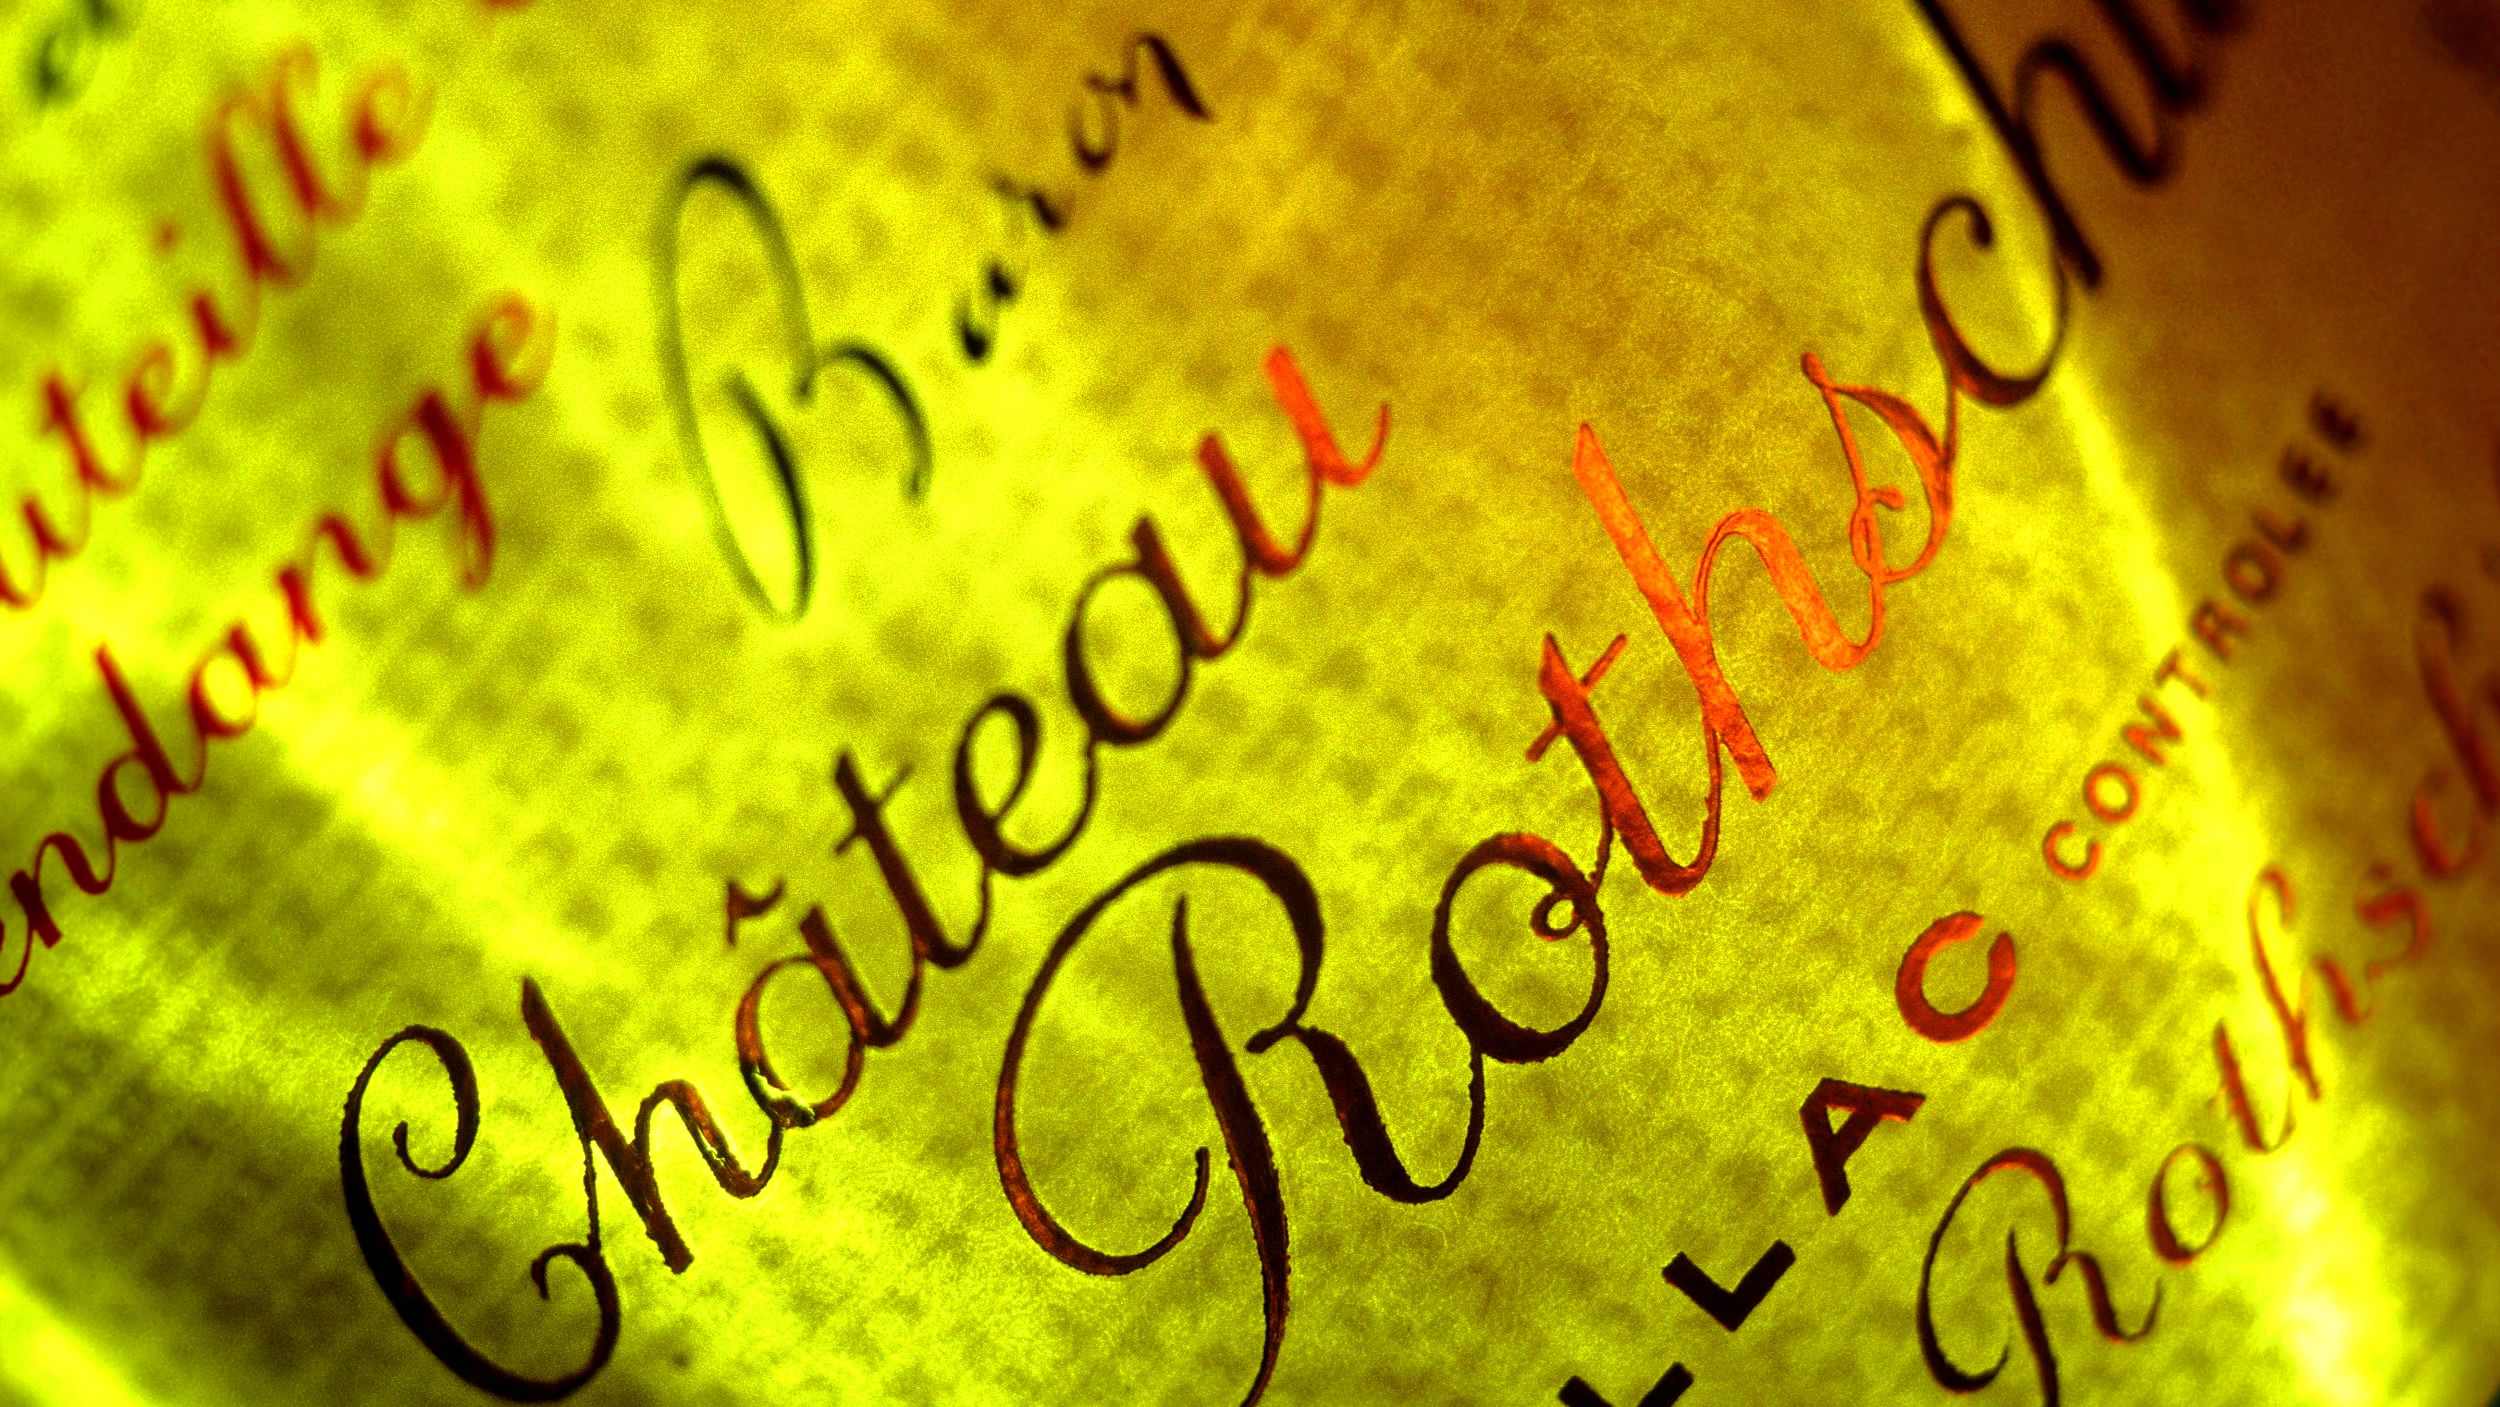 uteille
endange
Baron
Château
Rothschi
LLAC CONTROLEE
Rothsch